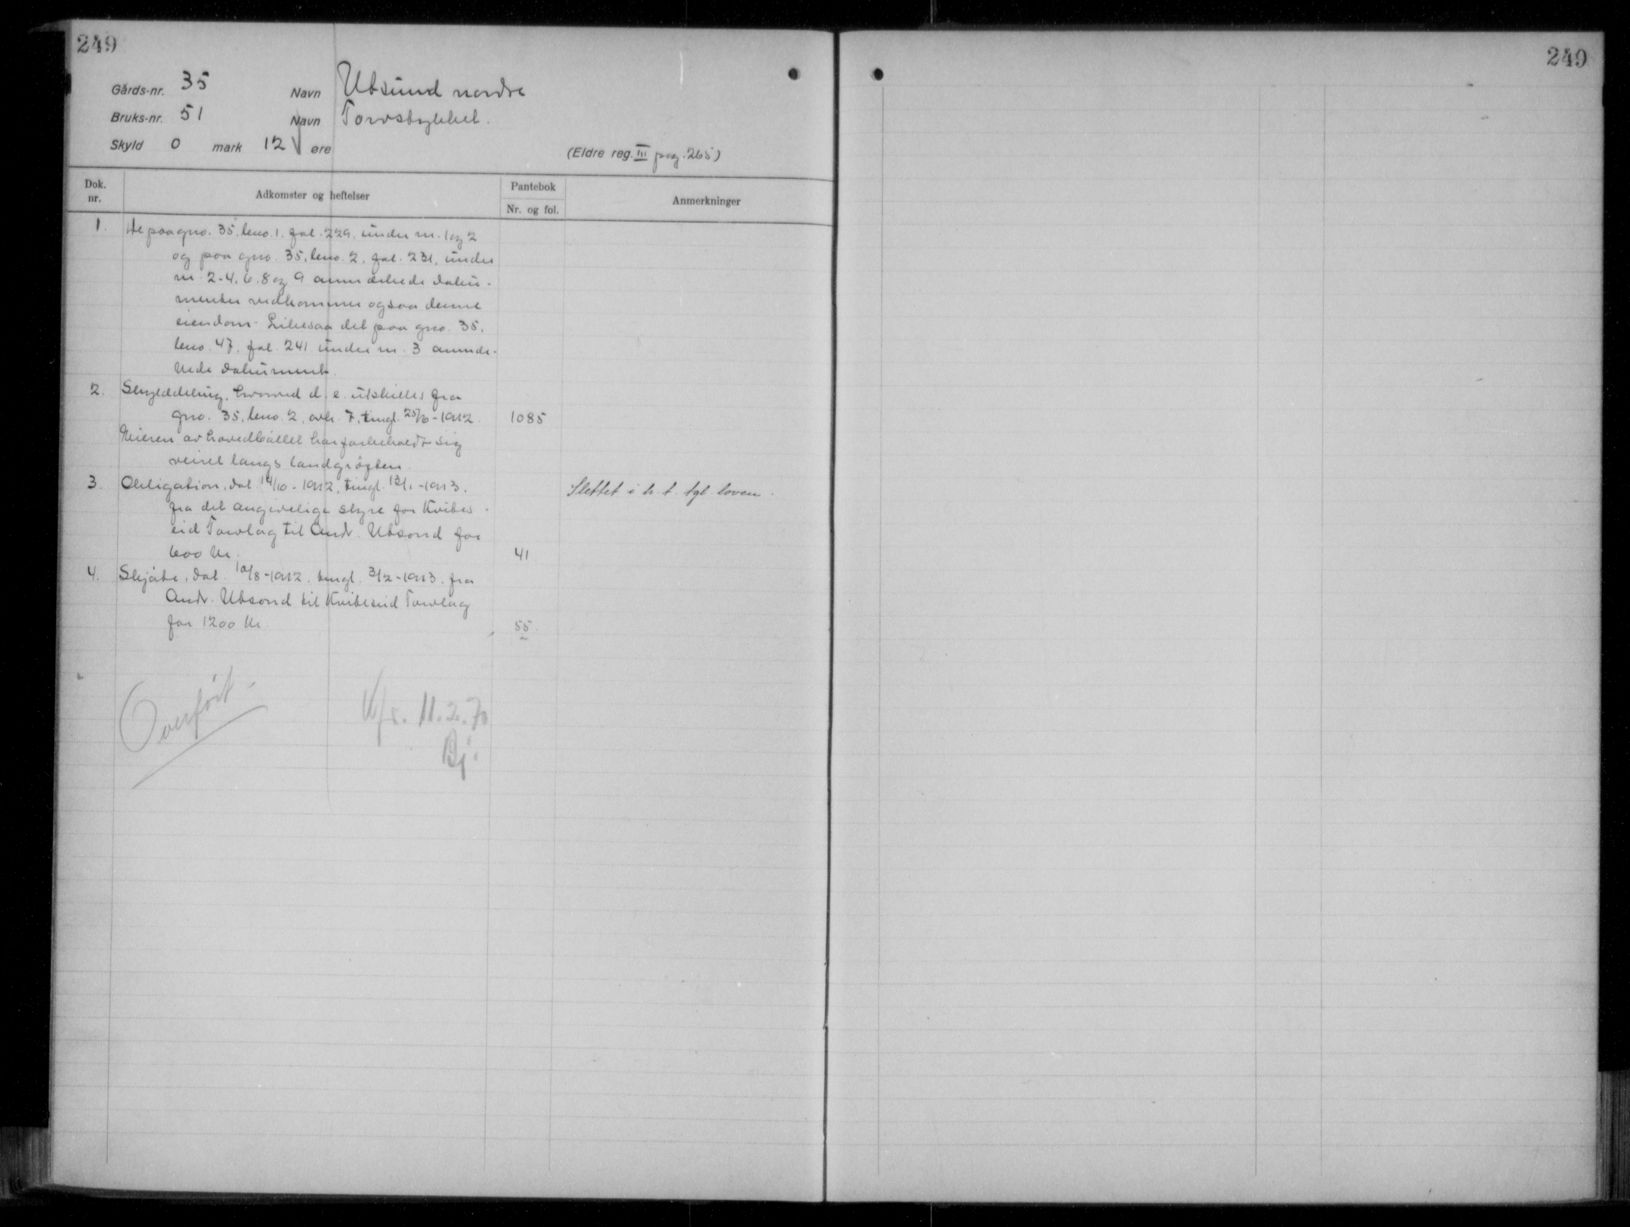 249
249
Gårds-nr. 35 Navn Utsund nordre
Bruks-nr. 51 Navn Torvstykket.
Skyld 0 mark 12 øre
(Eldre reg. III pag. 265)
Dok. nr.
Adkomster og heftelser
Pantebok
Nr. og fol.
Anmerkninger
1. De paa gno. 35, bno. 1, fol. 229, under nr. 1 og 2
og paa gno. 35, bno. 2, fol. 231, under
nr. 2-4, 6, 8 og 9 anmerkede doku-
menter vedkommer ogsaa denne
eiendom. Likesaa det paa gno. 35,
bno. 47, fol. 241 under nr. 3 anmer-
kede dokument.
2. Skylddeling, hvorved d. e. utskilles fra
gno. 35, bno. 2, avh. 7, tingl. - 1912. 1085
Eieren av hovedbøllet har forbeholdt sig
veiret langs landgrøften.
3. Obligation, dat. 14/10 - 1912, tingl. 13/1 - 1913, Slettet i h. t. tgl. loven.
fra det angivelige styre for Kvites-
eid Torvlag til Andr. Utsond for
600 kr. 41
4. Skjøte, dat. 10/8 - 1912, tingl. 3/2 - 1913, fra
Andr. Utsond til Kviteseid Torvlag
for 1200 kr. 55
Overført
K/r. 11.2.70
Bj.